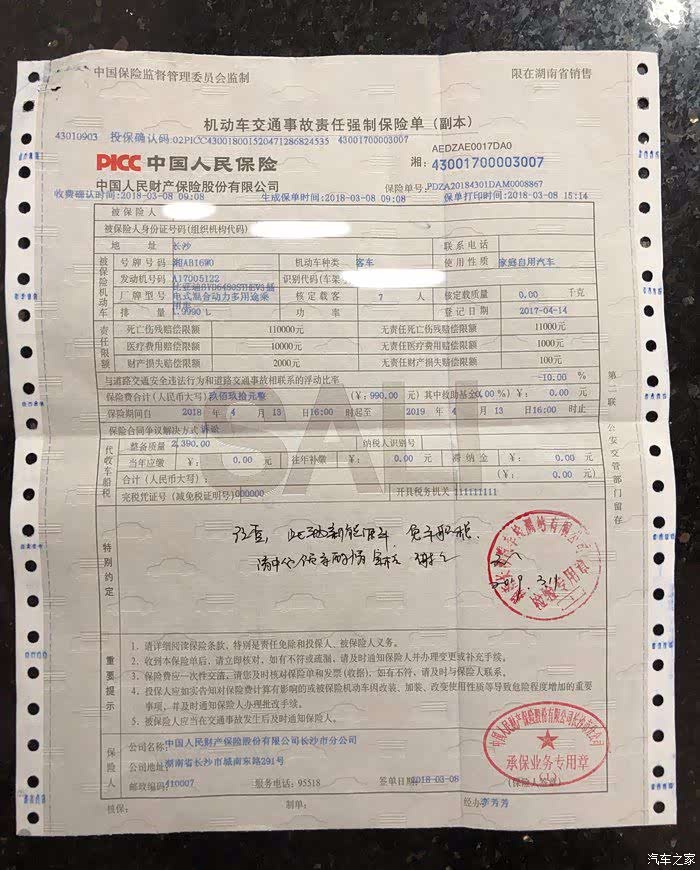 中国保险监督管理委员会监制 限在湖南省销售
机动车交通事故责任强制保险单 (副本)
43010903 投保确认码:02PICC430018001520471286824535 43001700003007
AEDZAE0017DA0
PICC 中国人民保险 湘: 43001700003007
中国人民财产保险股份有限公司 保险单号:PDZA20184301DAM0008867
收费确认时间:2018-03-08 09:08 生成保单时间:2018-03-08 09:08 保单打印时间:2018-03-08 15:14
被保险人
被保险人身份证号码(组织机构代码)
地 址 长沙 联系电话
被保险机动车
号牌号码 湘AB16W0 机动车种类 客车 使用性质 家庭自用汽车
发动机号码 A17005122 识别代码(车架
厂牌型号 比亚迪BYD6490STHEV3插电式混合动力多用途乘用车 核定载客 7 人 核定载质量 0.00 千克
排 量 1.9990 L 功 率 登记日期 2017-04-14
责任限额
死亡伤残赔偿限额 110000元 无责任死亡伤残赔偿限额 11000元
医疗费用赔偿限额 10000元 无责任医疗费用赔偿限额 1000元
财产损失赔偿限额 2000元 无责任财产损失赔偿限额 100元
与道路交通安全违法行为和道路交通事故相联系的浮动比率 -10.00 %
保险费合计(人民币大写):玖佰玖拾元整 (¥:990.00 元) 其中救助基金( .00 %) ¥: 0.00 元
保险期间自 2018 年 4 月 13 日16:00 时起至 2019 年 4 月 13 日16:00 时止
保险合同争议解决方式 诉讼
代收车船税
整备质量 2,390.00 纳税人识别号
当年应缴 ¥: 0.00 元 往年补缴 ¥: 0.00 元 滞纳金 ¥: 0.00 元
合计(人民币大写): (¥: 0.00 元)
完税凭证号(减免税证明号) 000000 开具税务机关 111111111
SALI
特别约定
检验专用章
重要提示
1. 请详细阅读保险条款,特别是责任免除和投保人、被保险人义务。
2. 收到本保险单后,请立即核对,如有不符或疏漏,请及时通知保险人并办理变更或补充手续。
3. 保险费应一次性交清,请您及时核对保险单和发票(收据),如有不符,请及时与保险人联系。
4. 投保人应如实告知对保险费计算有影响的或被保险机动车因改装、加装、改变使用性质等导致危险程度增加的重要
事项,并及时通知保险人办理批改手续。
5. 被保险人应当在交通事故发生后及时通知保险人。
保险人
公司名称:中国人民财产保险股份有限公司长沙市分公司
公司地址:湖南省长沙市城南东路291号
邮政编码:410007 服务电话: 95518 签单日期:2018-03-08 (保险人签章)
中国人民财产保险股份有限公司长沙市分公司
承保业务专用章
核保: 制单: 经办:李芳芳
第二联 公安交管部门留存
汽车之家